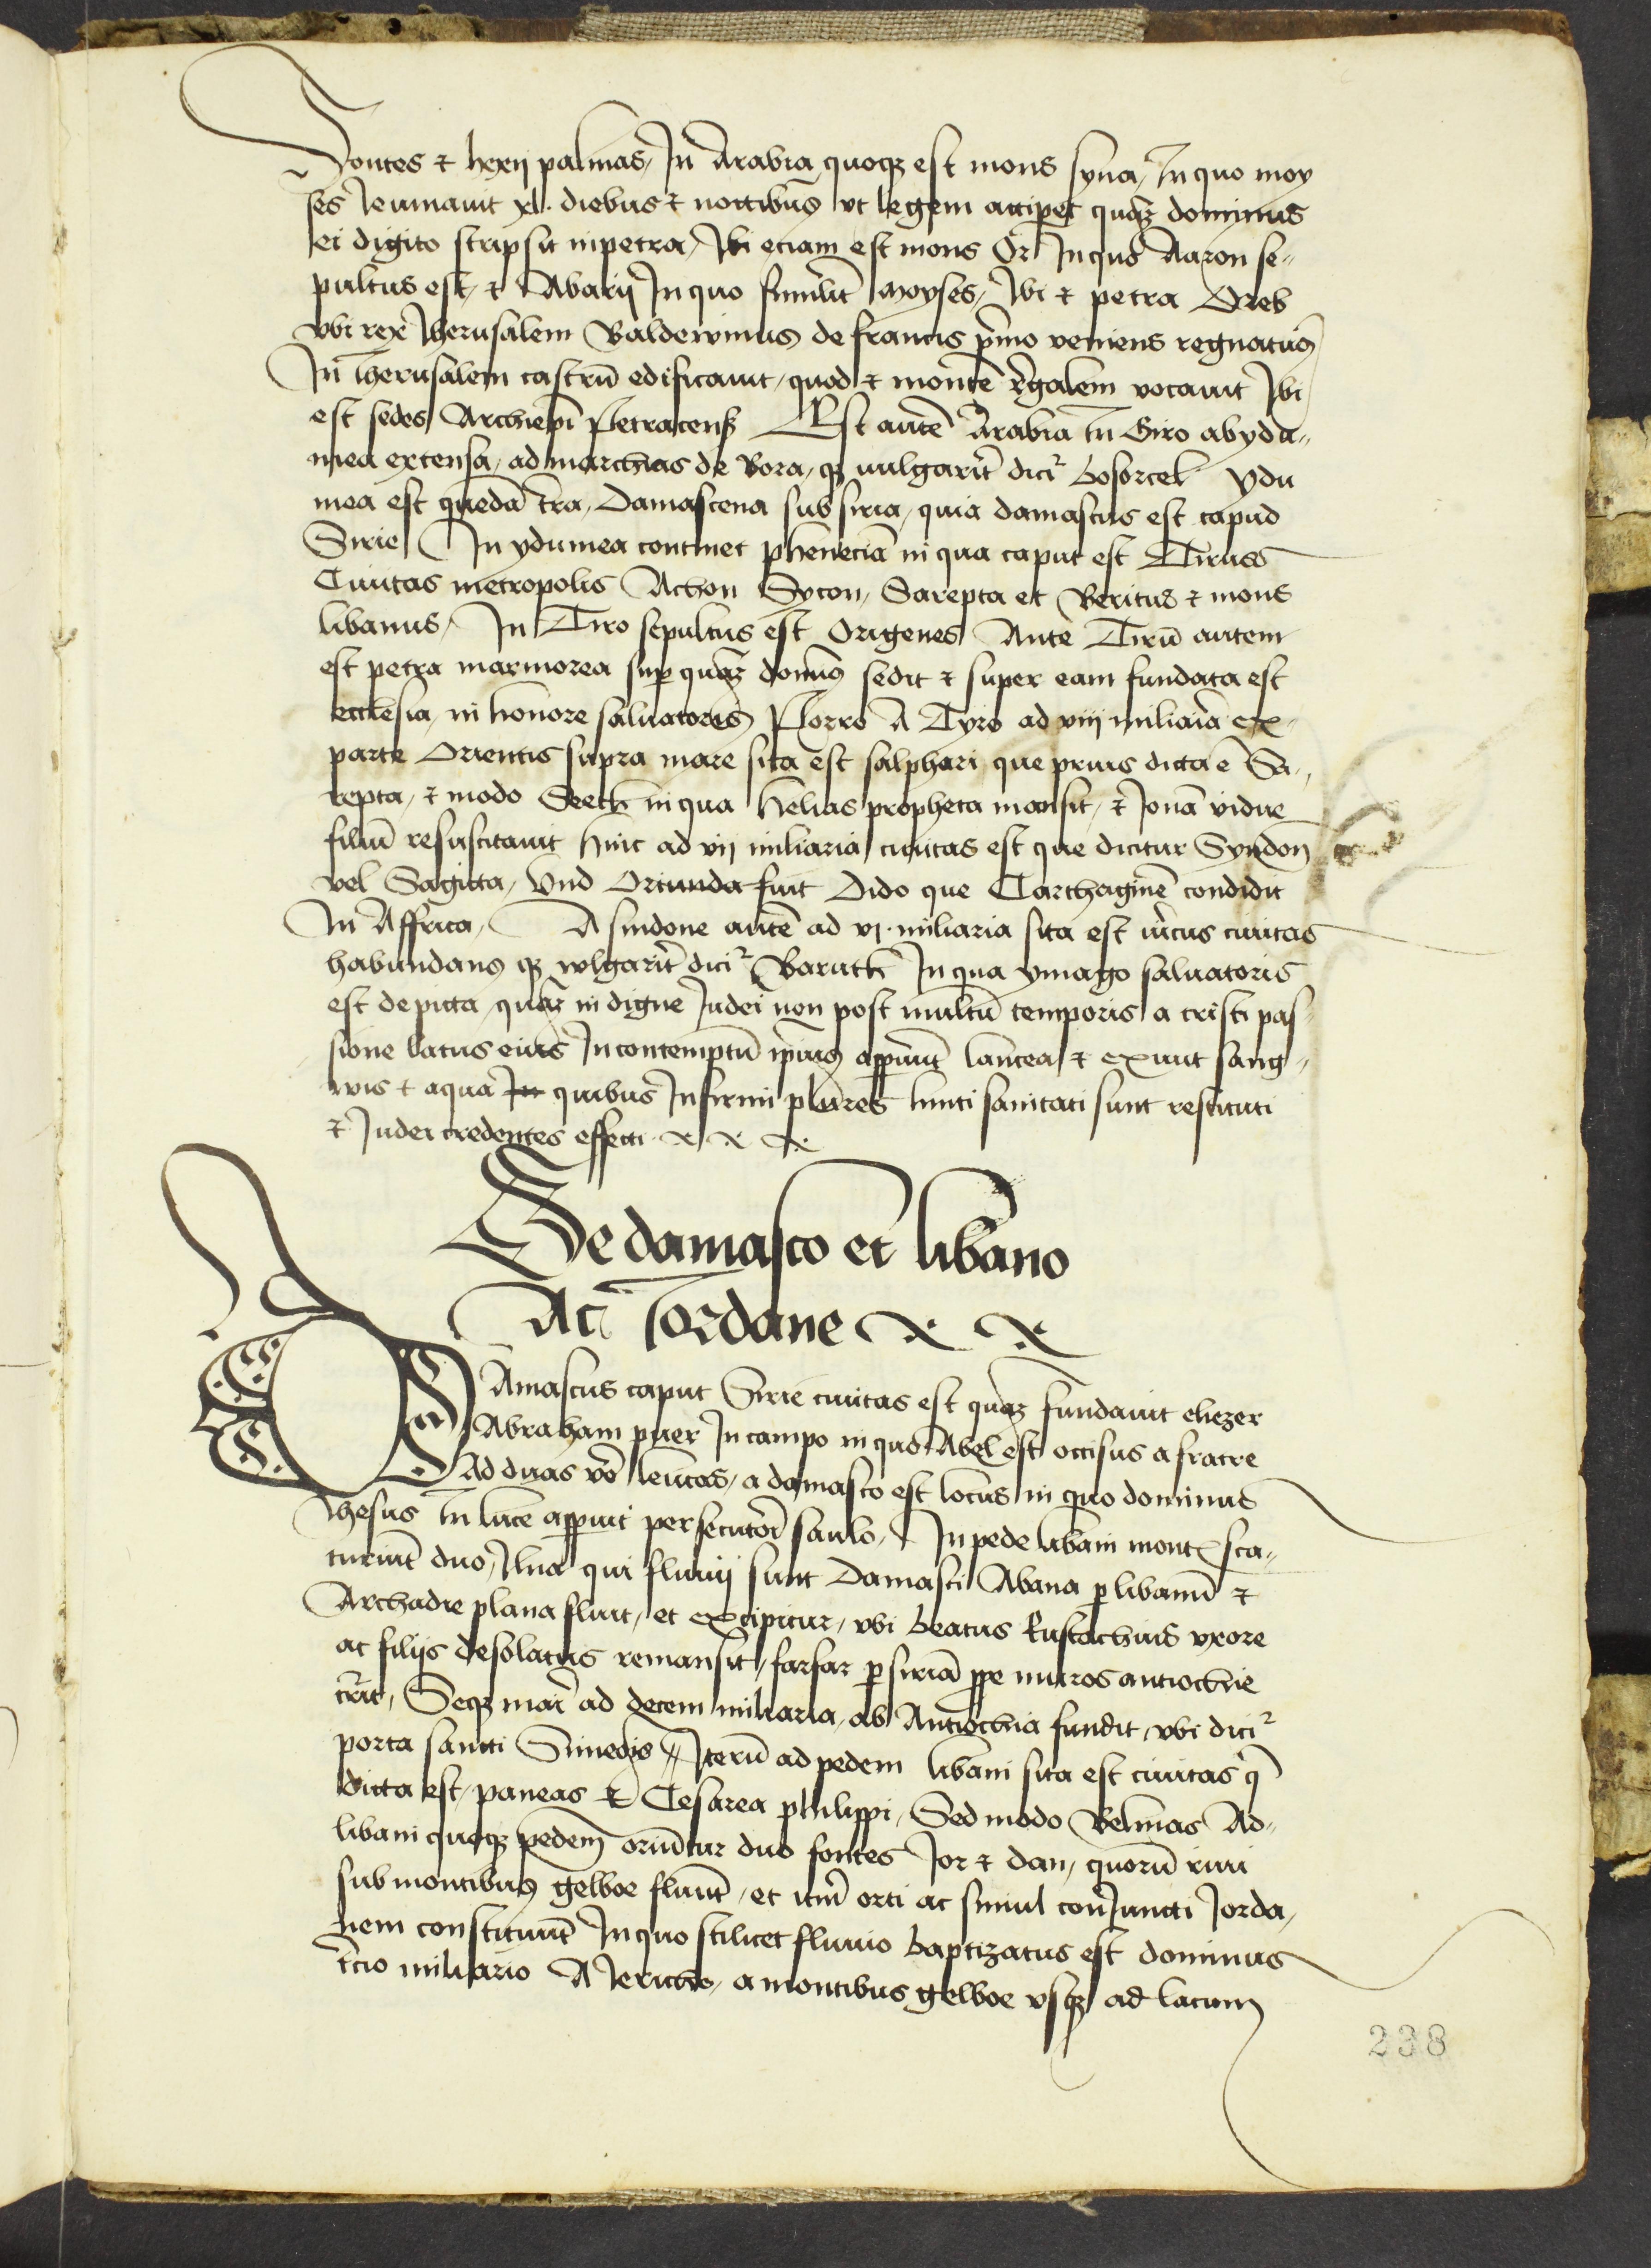 Fontes ⁊ lxxij palmas, In Arabia quoqꝫ est mons syna, In quo moy
ses Ieiunavit xl. diebus ⁊ noctibus vt legem acciperet quaꝫ dominus
ei digito scripsit in petra, Ibi etiam est mons Or In quo Aaron se„
pultus est, ⁊ Abarij In quo Moyses, Ibi ⁊ petra Oreb
vbi rex Iherusalem Baldewinus de francis pͥmo veniens regnaturꝰ
In Iherusalem castrū edificauit, quod ⁊ montē rͤgalem vocauit Ibi
est sedes Archiepī Petracenß Est autē Arabia In Giro ab ydu„
mea extensa, ad marchias de Bora, qꝫ uulgarit̄ dicit᷑ Bosorcel ydu
mea est quedā t̄ra, Damascena sub siria, quia damascus est capud
Sirie In ydumea continet pheneciā in qua caput est Tirus
Ciuitas metropolis Achon Sycon, Sarepta et Beritus ⁊ mons
libanus, In Tiro sepultus est Origenes Ante Tirū autem
est petra marmorea suꝑ quaꝫ domin9 sedit ⁊ super eam fundata est
ecclesia, in honore saluatoris Porro A Tyro ad viij miliaria ex
parte Orientis supra mare sita est salphari que prius dicta ē Sa„
repta, ⁊ modo Seeth in qua Helias propheta mansit, ⁊ Jonā vidue
filiū resuscitauit hinc ad vij miliaria ciuitas est que dicitur Syndon
vel Sagitta, Vnd Oriunda fuit Dido que Carthaginē condidit
In Affrica, A sindone autē ad vj. miliaria sita est ciuitas
habundans qꝫ wlgarit̄ dicit᷑ Baruth In qua ymago saluatoris
est depicta, quaꝫ indigne Judei non post multū temporis a cristi pas
sione latus eius In contemptū ip̄ius lancea ⁊ exiuit sang„
wis ⁊ aqua quibus Infirmi plures uncti sanitati sunt restituti
⁊ Judei credentes effecti
De damasco et libano
Ac Iordane
DAmascus caput Sirie ciuitas est quaꝫ fundauit eliezer
Abraham puer In campo in quo Abel est occisus a fratre
Ad duas vͦo leucas, a damasco est locus in quo dominus
Ihesus In luce apparuit persecutori saulo, In pede libani montis sca„
turiunt duo, flua qui fluuij sunt Damasci Abana ꝑ libanū ⁊
Archadie plana fluit, et excipitur, vbi beatus Eustachius vxore
ac filijs desolatus remansit, farfar ꝑ siriā ꝓpe muros antiochie
, Seqꝫ mari ad decem miliaria, ab Antiochia fundit, vbi dicit᷑
porta sancti Simeōis Iterū ad pedem libani sita est ciuitas q̄
dicta est, paneas ⁊ Cesarea philippi, Sed modo Belinas Ad„
libani quoqꝫ pedem oriūtur duo fontes Jor ⁊ dan, quorū riui
sub montibus gelboe fluūt, et orti ac simul conJuncti Jorda„
nem constituūt In quo scilicet fluuio baptizatus est dominus
t̄cio miliario A Jericho, a montibus gelboe vsqꝫ ad lacum
238